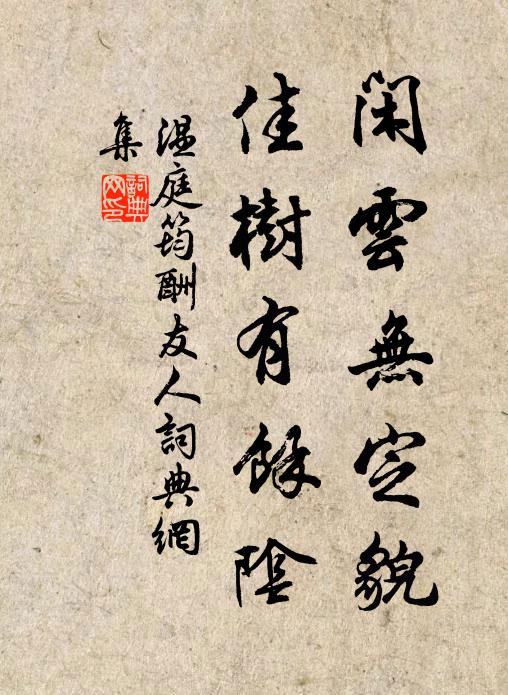 閑雲無定貌
佳樹有餘陰
溫庭筠酬友人詞典網
集
詞典
网印